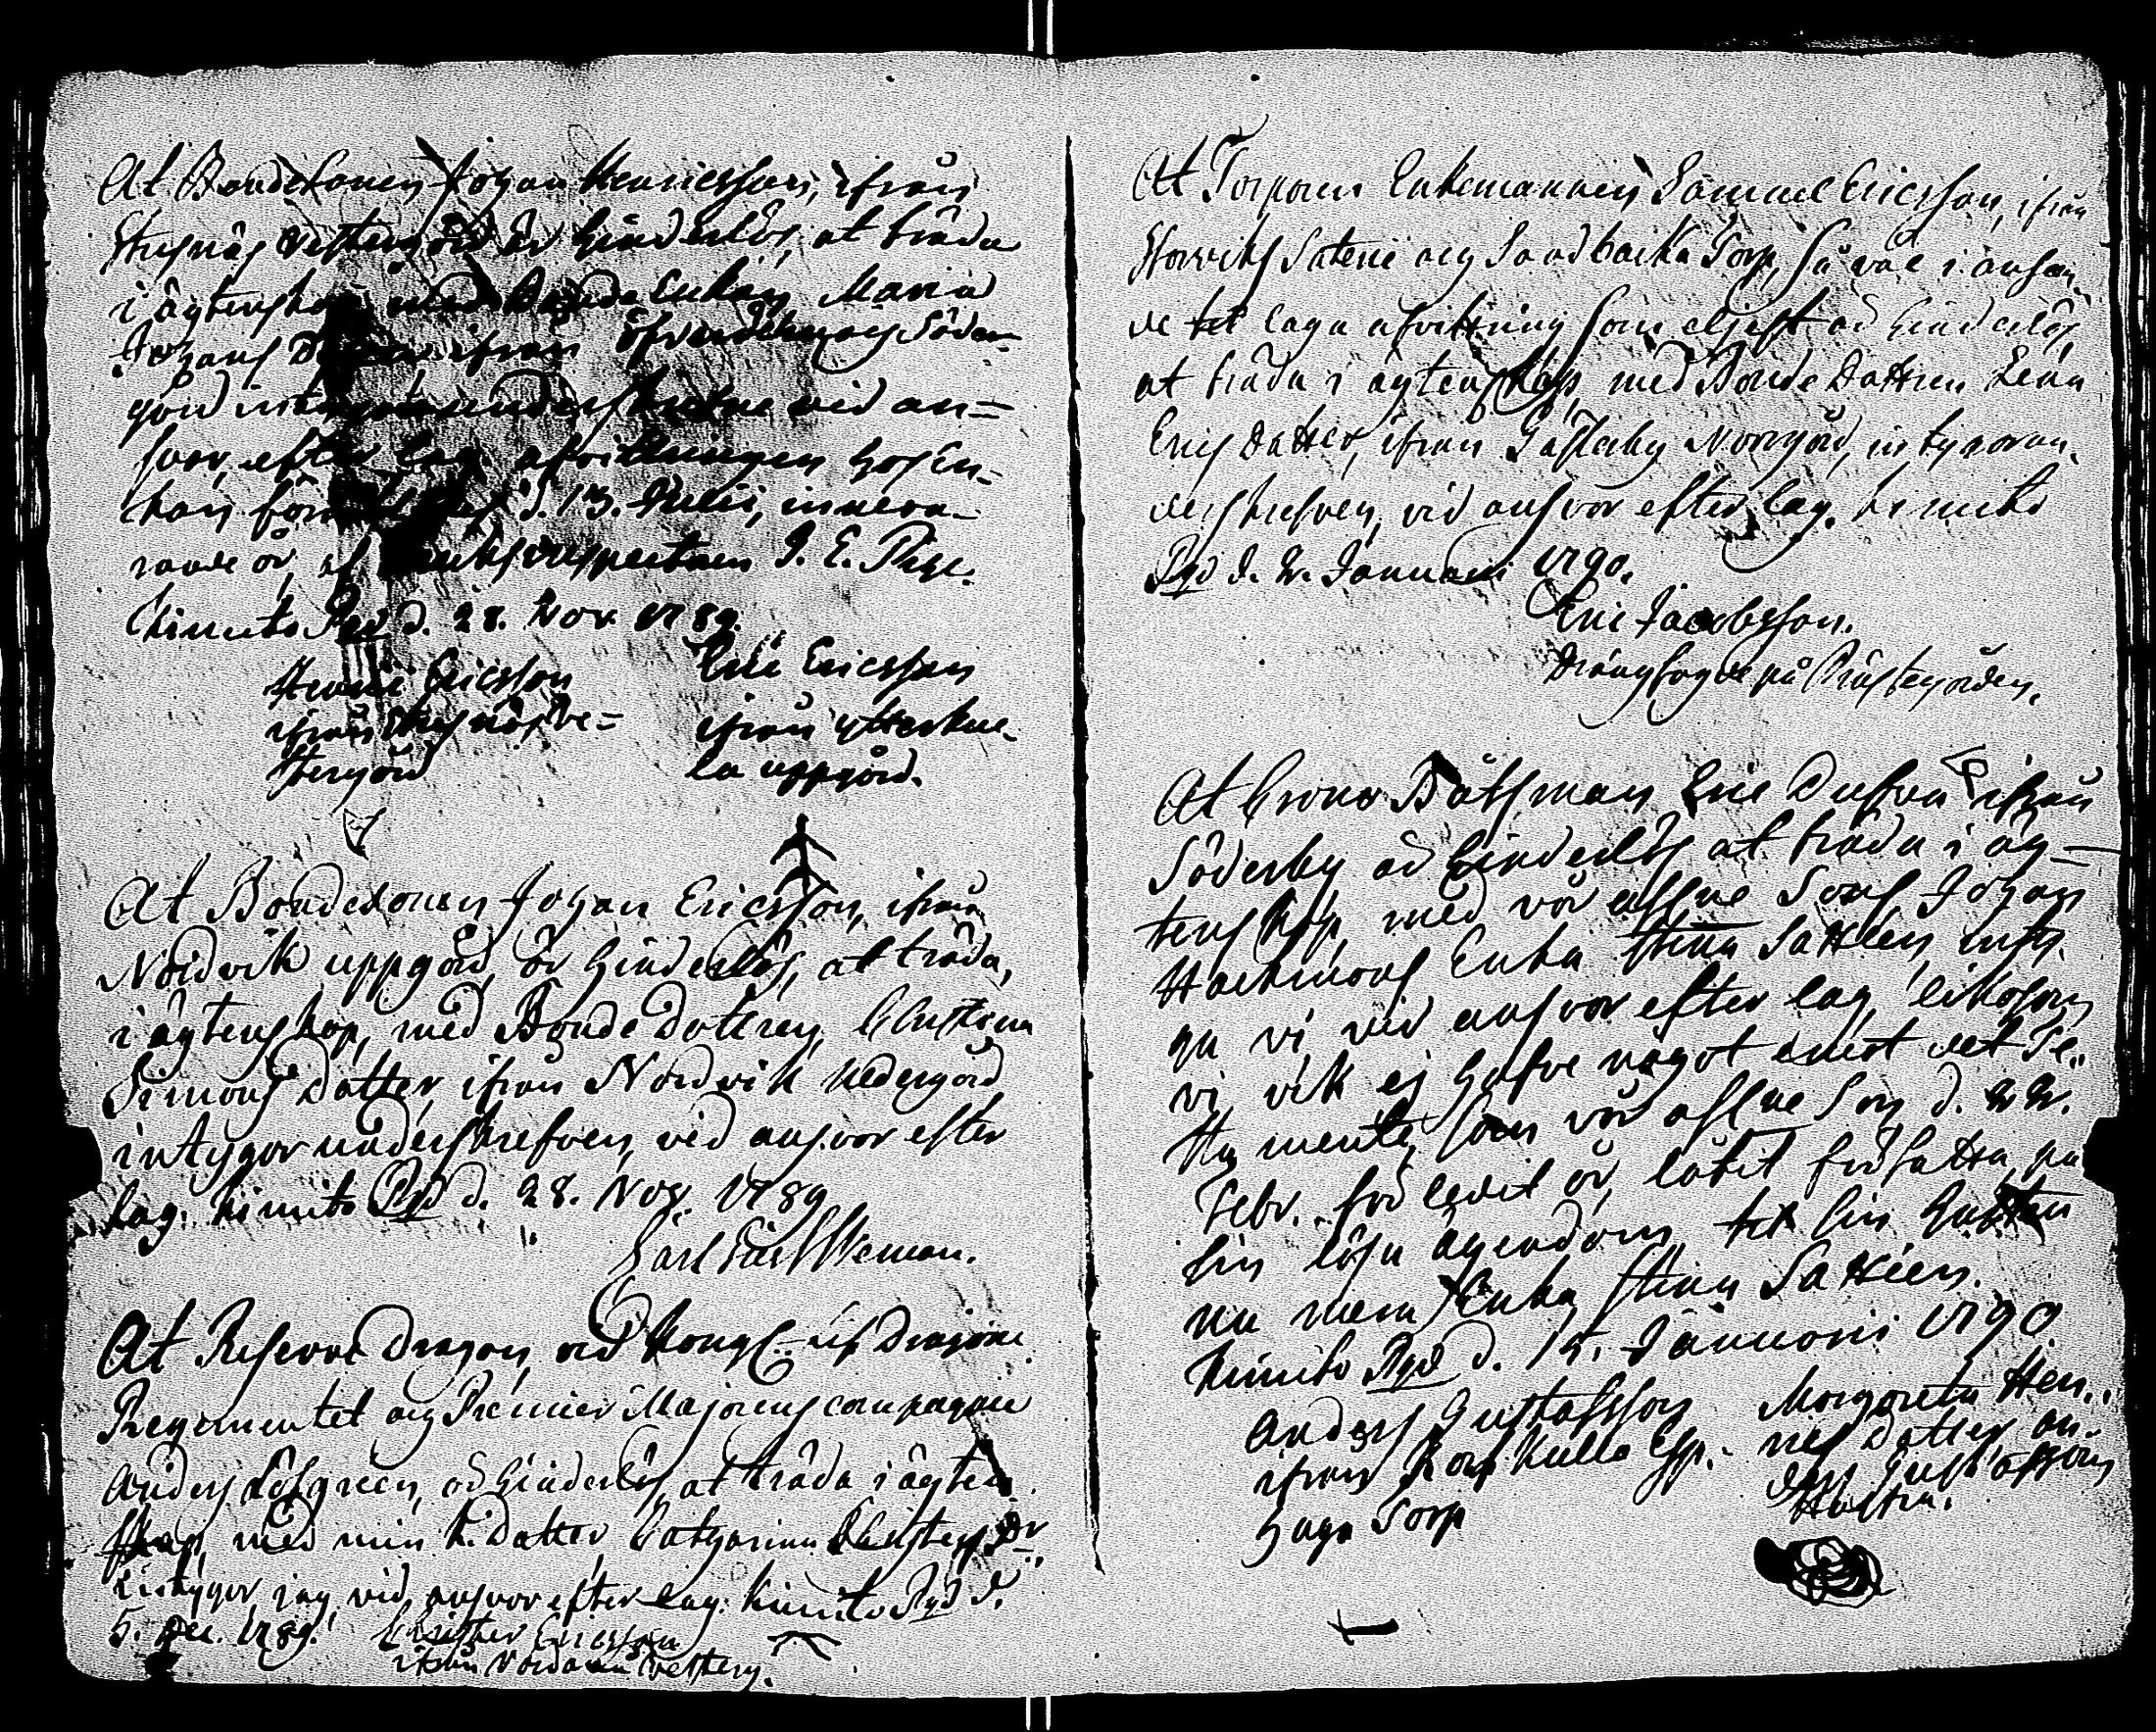 At Bondesonen Johan Henricsson, ifrån
Westergård är hinderlös, at träda
i ägtenskap med Bonde Enkan Maria
Johans ifrån Söder-
gård intyga underskrefne vid an=
svar efter lag, afvittringen hos En-
kan d. 13. Julii, innewa-
rande år, af J. E. Pige.
Kimito Pgd d. 28. Nov. 1789.
Henric Ericsson
ifrån We=
stergård
Eric Ericsson
ifrån ytterkul-
la uppgård.
At Bondesonen Johan Ericsson, ifrån
Nordvik uppgård, är hinderlös, at träda,
i ägtenskap, med Bonde Dottren, Christina
Simons Dotter, ifrån Nordvik nedergård
intygar underskrefven, vid ansvar efter
lag. Kimito Pgd d. 28. Nov. 1789
Carl
At Reserve Dragon, vid Kongl. Lif Dragone
Regementet och Premier Majorens compagnie
Anders Löfgreen, är hinderlös, at träda i ägten-
skap, med min K. Dotter, Catharina Christers Dr
intygar jag, vid ansvar efter lag. Kimito Pgd d.
5. Dec. 1789. Christher Ericsson
ifrån Westerg.
At Torparen Enkemannen Samuel Ericsson, ifrån
Säterie och Sandbacka Torp, så väl i ansen
de til laga afvittring som eljest är hinderlös,
at träda i ägtenskap, med Bonde Dottren Lena
Erics Dotter, ifrån Norrgård, intygar un-
derskrefven, vid ansvar efter lag. Kimito
Pgd d. 2. Januarii 1790.
Eric Jacobsson.
Drängfogde på Prästegården.
At Crono Båtsman Eric Dufva ifrån
Söderby är hinderlös at träda i äg-
tenskap, med vår aflne Sons Johan
Enka Stina inty-
ga vi vid ansvar efter lag, likasom
vi ej hafve något emot det Te-
stamente, som vår aflne Son d. 22.
Febr. förledit år, låtit författa på
sin lösa ägendom til sin Hustru
nu mera Enka Stina
Kimito Pgd d. 15. Januarii 1790.
Anders Gustafsson
ifrån
haga Torp
Margareta Hen-
rics Dotter An-
ders Gustafssons
Hustru.